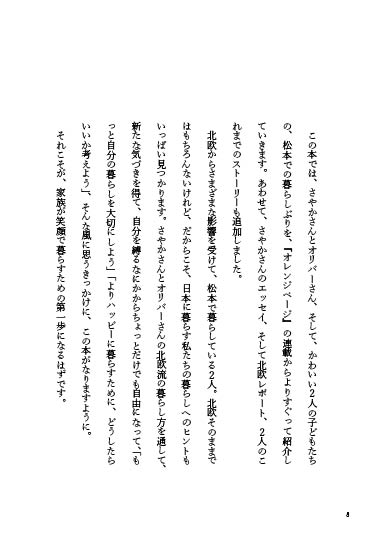 この本では、さやかさんとオリバーさん、そして、かわいい2人の子どもたち
の、松本での暮らしぶりを、『オレンジページ』の連載からよりすぐって紹介し
ていきます。あわせて、さやかさんのエッセイ、そして北欧レポート、2人のこ
れまでのストーリーも追加しました。
北欧からさまざまな影響を受けて、松本で暮らしている2人。北欧そのままで
はもちろんないけれど、だからこそ、日本に暮らす私たちの暮らしへのヒントも
いっぱい見つかります。さやかさんとオリバーさんの北欧流の暮らし方を通して、
新たな気づきを得て、自分を縛るなにかからちょっとだけでも自由になって、「も
っと自分の暮らしを大切にしよう」「よりハッピーに暮らすために、どうしたら
いいか考えよう」、そんな風に思うきっかけに、この本がなりますように。
それこそが、家族が笑顔で暮らすための第一歩になるはずです。
8